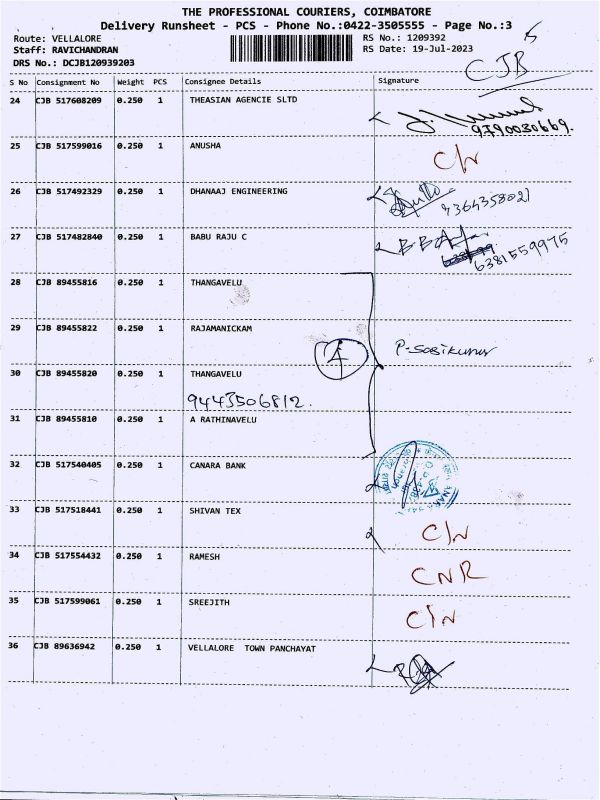 THE PROFESSIONAL COURIERS, COIMBATORE
Delivery Runsheet - PCS - Phone No.:0422-3505555 - Page No.:3
Route: VELLALORE RS No.: 1209392
Staff: RAVICHANDRAN RS Date: 19-Jul-2023
DRS No.: DCJB120939203 CJB
S No Consignment No Weight PCS Consignee Details Signature
24 CJB 517608209 0.250 1 THEASIAN AGENCIE SLTD
9790030669.
25 CJB 517599016 0.250 1 ANUSHA
26 CJB 517492329 0.250 1 DHANAAJ ENGINEERING
27 CJB 517482840 0.250 1 BABU RAJU C
6381559975
28 CJB 89455816 1 THANGAVELU
0.250
29 CJB 89455822 0.250 1 RAJAMANICKAM
4 P-Sasikumar
30 CJB 89455820 0.250 1 THANGAVELU
9443506812.
31 CJB 89455810 0.250 1 A RATHINAVELU
32 CJB 517540405 0.250 1 CANARA BANK
33 CJB 517518441 0.250 1 SHIVAN TEX
34 CJB 517554432 0.250 1 RAMESH
CNR
35 CJB 517599061 0.250 1 SREEJITH
36 CJB 89636942 0.250 1 VELLALORE TOWN PANCHAYAT